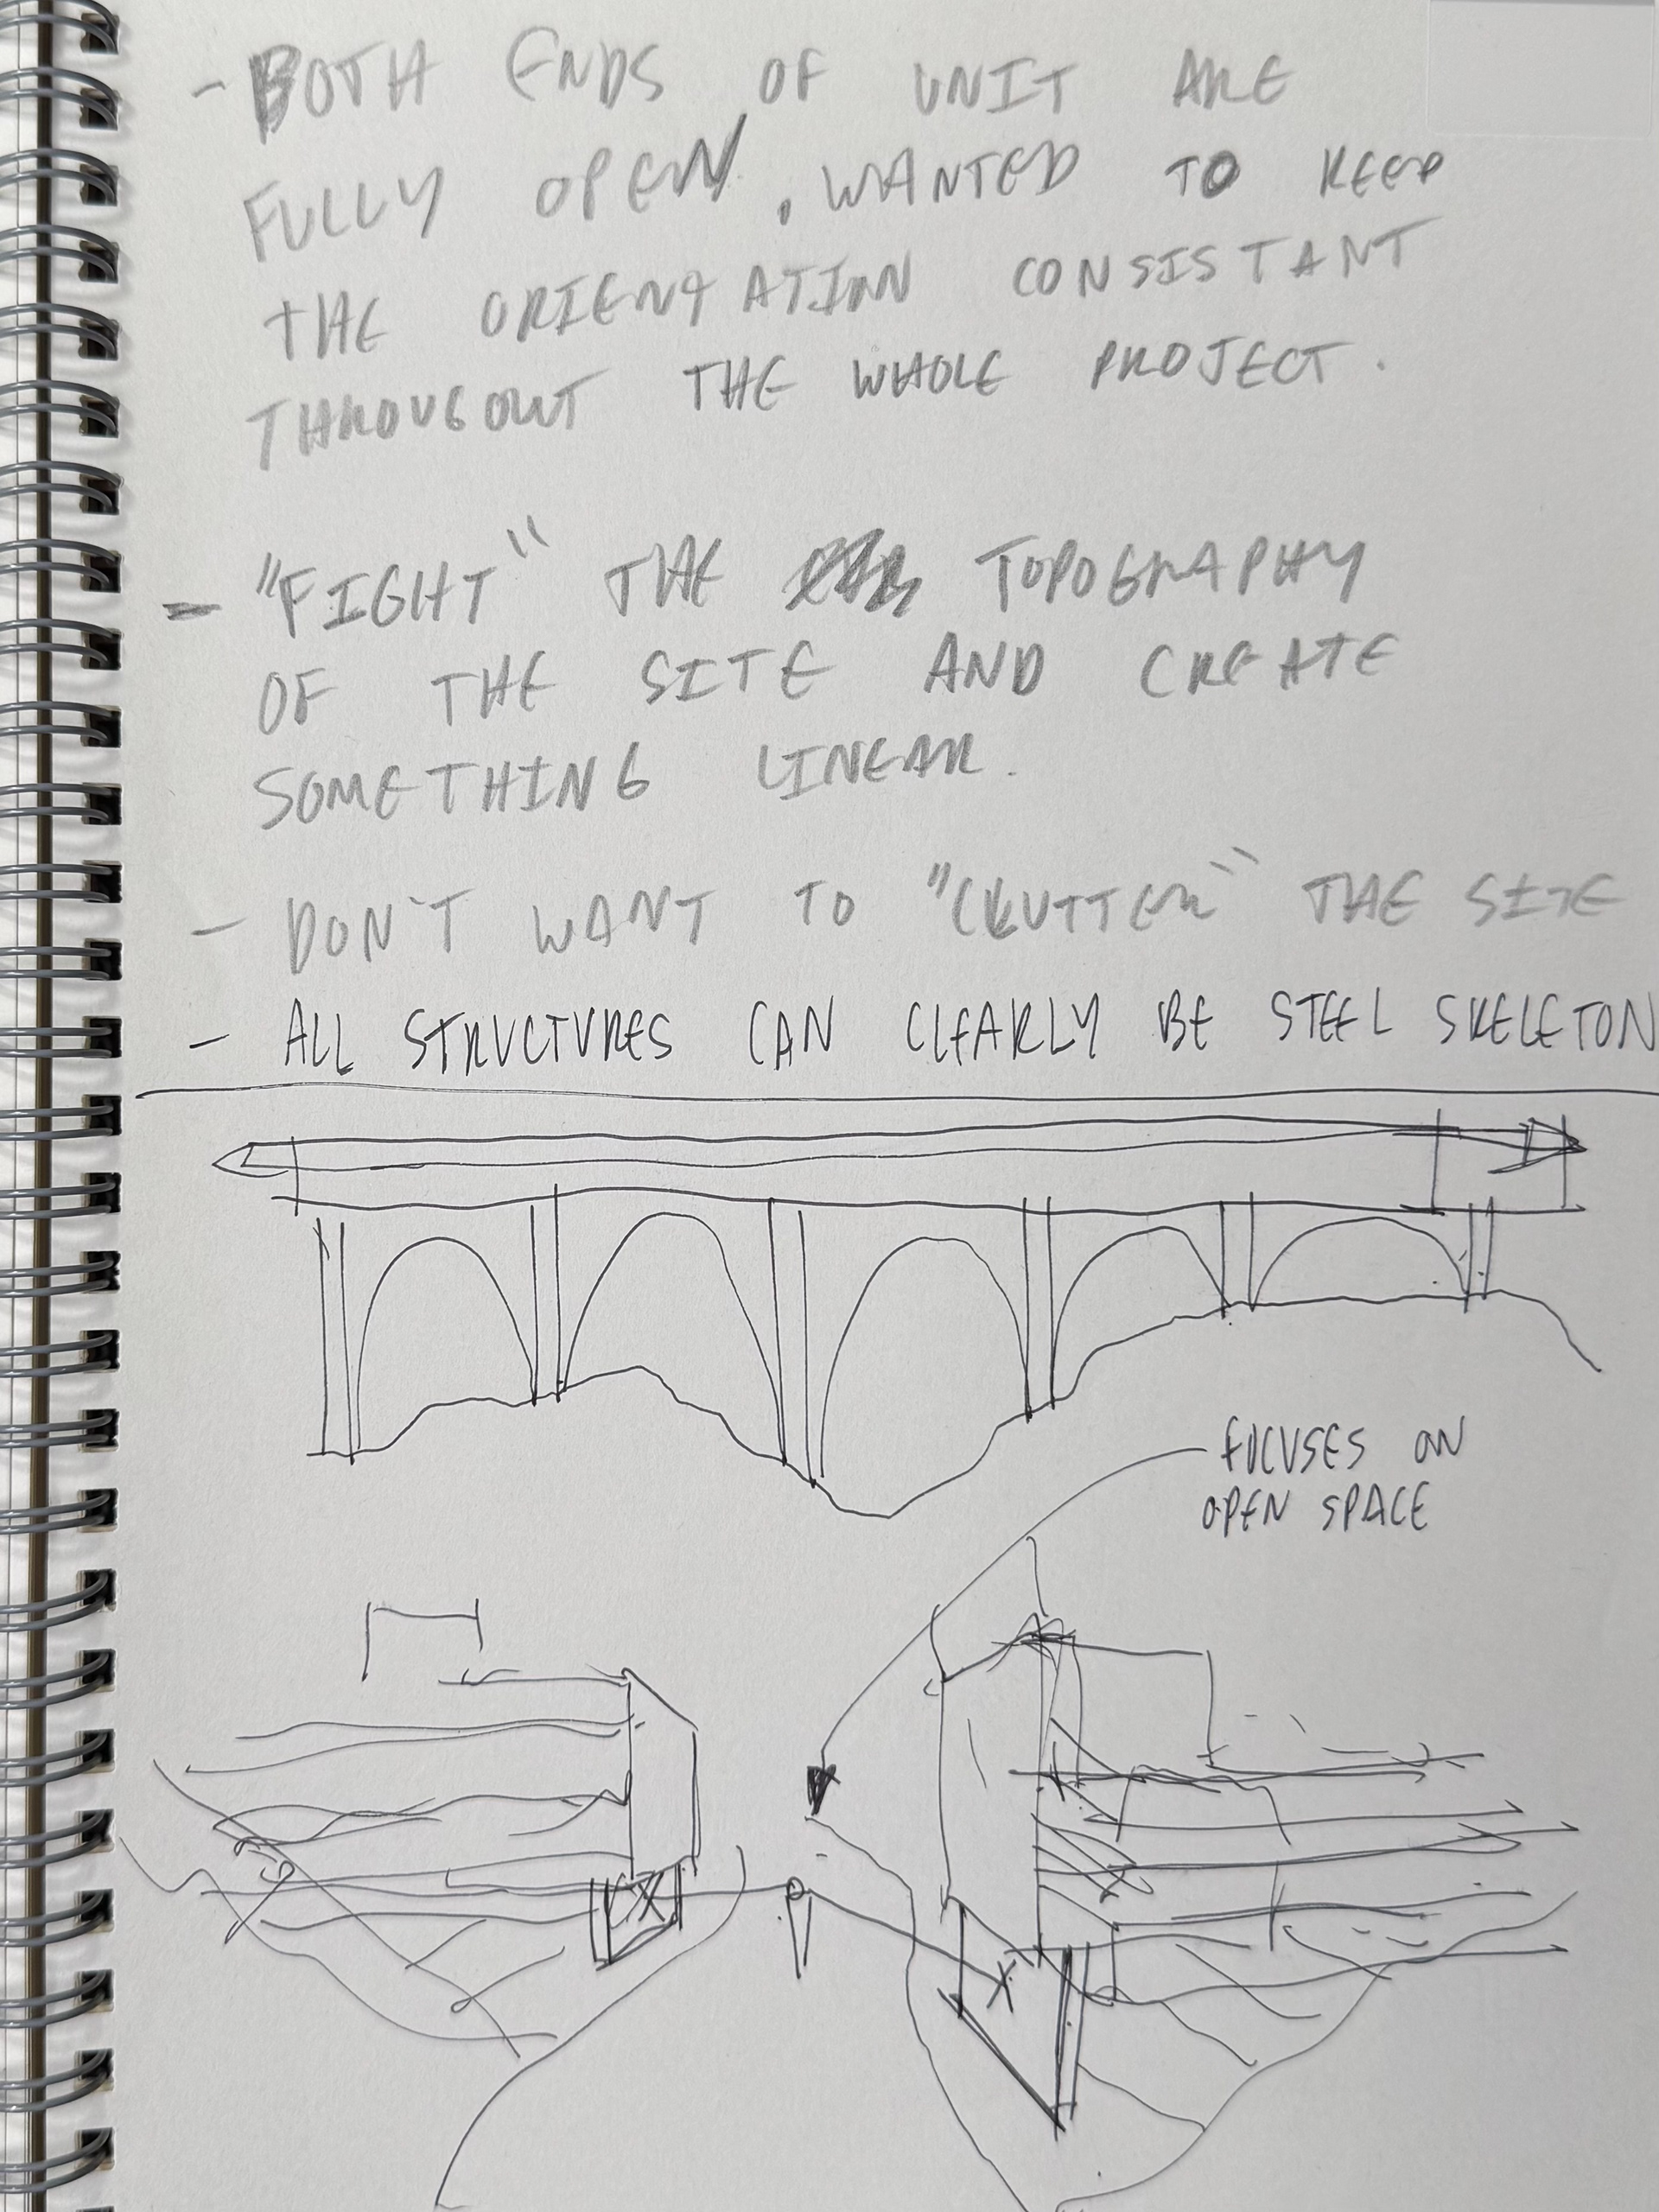 - BOTH ENDS OF UNIT ARE
FULLY OPEN. WANTED TO KEEP
THE ORIENTATION CONSISTANT
THROUGOUT THE WHOLE PROJECT.
- "FIGHT" THE TOPOGRAPHY
OF THE SITE AND CREATE
SOMETHING LINEAR.
- DON'T WANT TO "CLUTTER" THE SITE
- ALL STRUCTURES CAN CLEARLY BE STEEL SKELETON
FOCUSES ON
OPEN SPACE